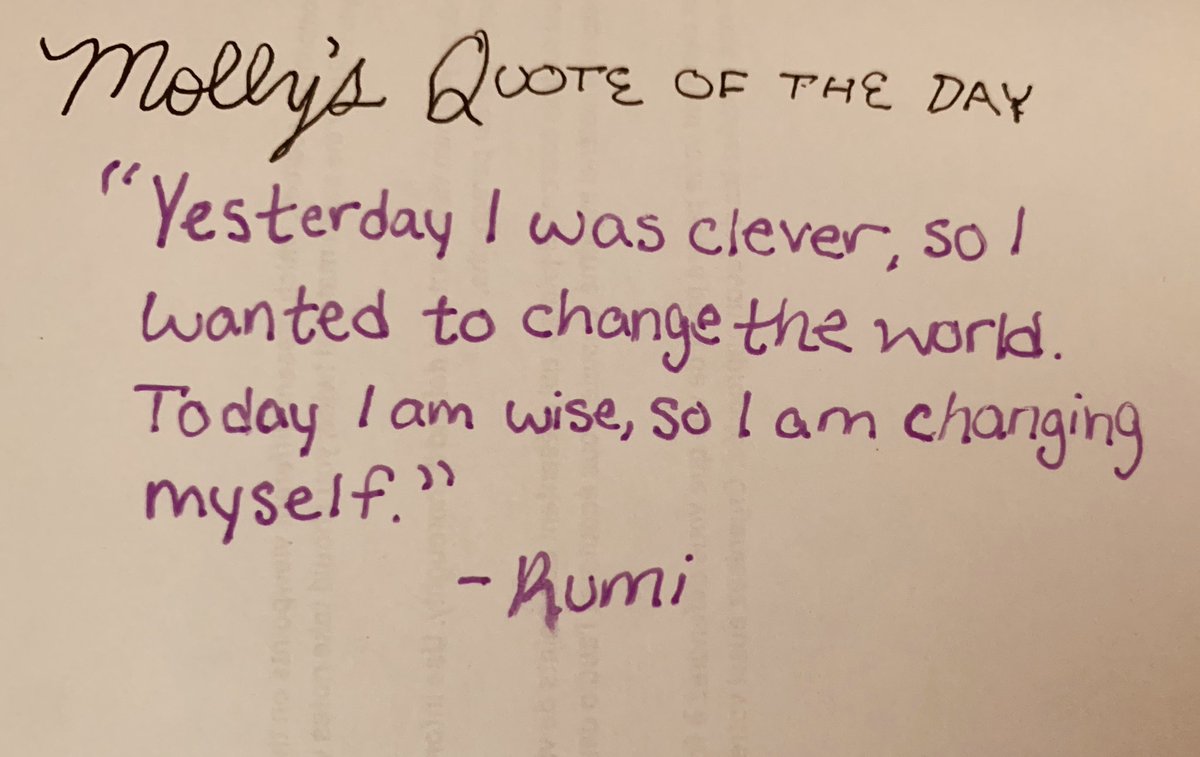 Molly's QUOTE OF THE DAY
“Yesterday I was clever, so I
wanted to change the world.
Today I am wise, so I am changing
myself.”
- Rumi